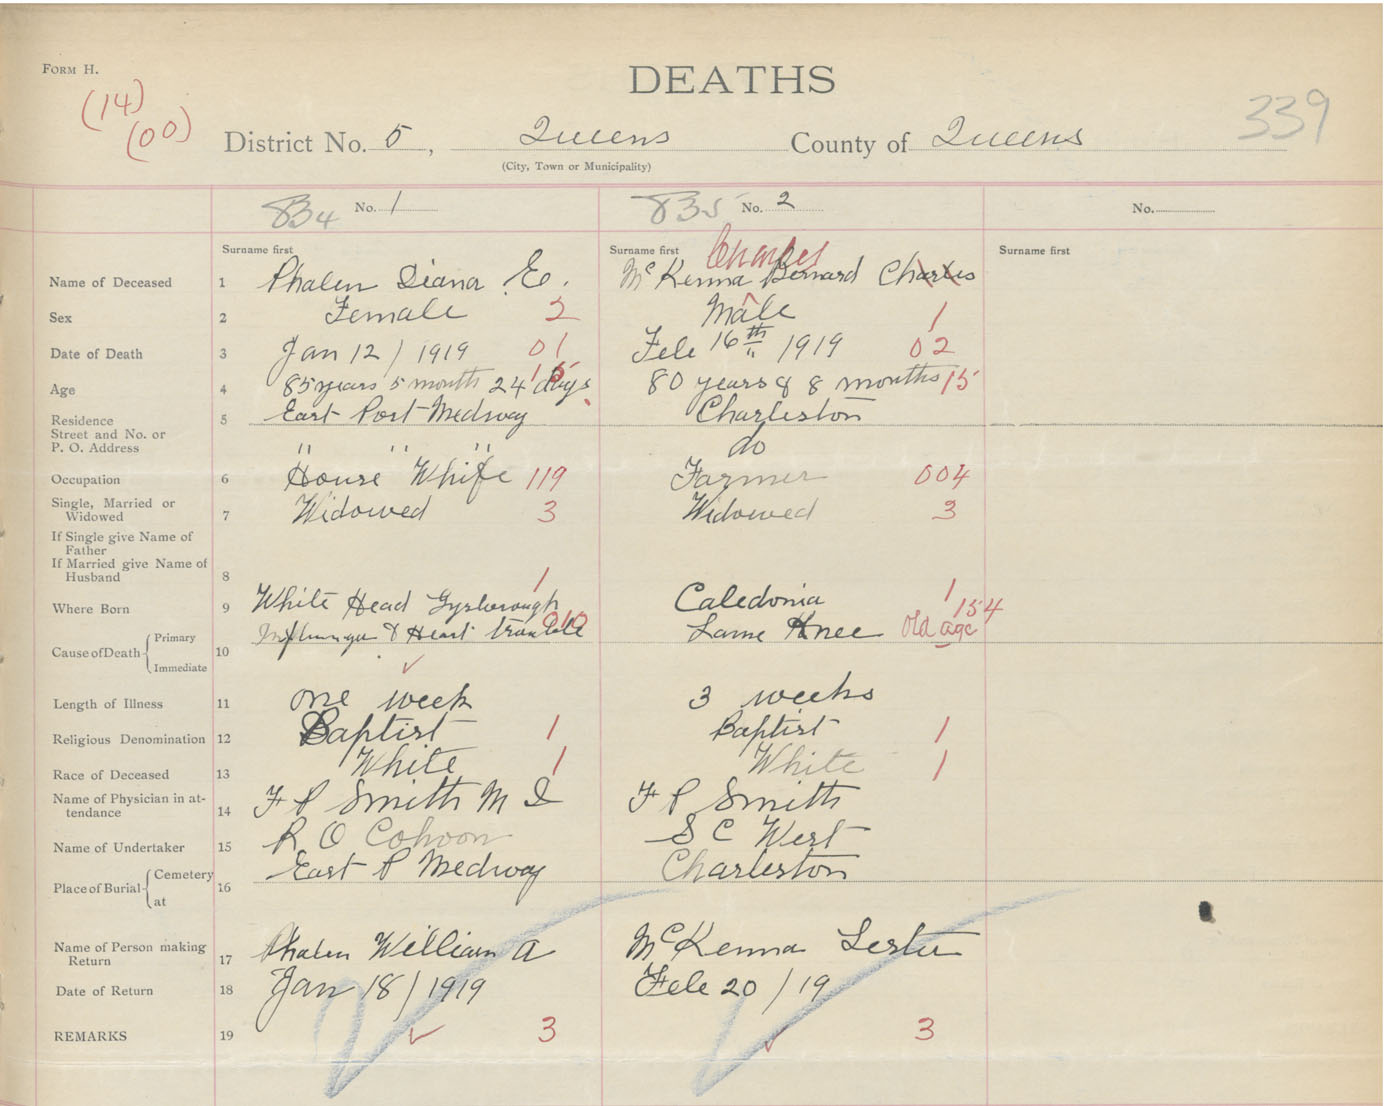 FORM H.
DEATHS
(14)
(00)
339
District No. 5, Queens County of Queens
(City, Town or Municipality)
834 No. 1 835 No. 2 No.
Surname first Surname first Charles Surname first
Name of Deceased 1 Phalen Diana E. McKenna Bernard Charles
Sex 2 Female 2 Male 1
Date of Death 3 Jan 12 / 1919 01 Feb 16th / 1919 02
Age 4 85 years 5 month 24 days 15 80 years & 8 months 15
Residence 5 East Port Medway Charleston
Street and No. or
P. O. Address " " " do
Occupation 6 House Whife 119 Farmer 004
Single, Married or
Widowed 7 Widowed 3 Widowed 3
If Single give Name of
Father
If Married give Name of
Husband 8
1 1
Where Born 9 White Head Gysborough Caledonia 154
Primary 010 Lame Knee Old age
Cause of Death 10 & Heart trouble
Immediate
Length of Illness 11 one week 3 weeks
Religious Denomination 12 Baptist 1 Baptist 1
Race of Deceased 13 White 1 White 1
Name of Physician in at-
tendance 14 F P Smith M D F P Smith
Name of Undertaker 15 R O Cohoon S C West
Place of Burial Cemetery 16 East P Medway Charleston
at
Name of Person making
Return 17 Phalen William A McKenna Lester
Date of Return 18 Jan 18 / 1919 Feb 20 / 19
REMARKS 19 3 3